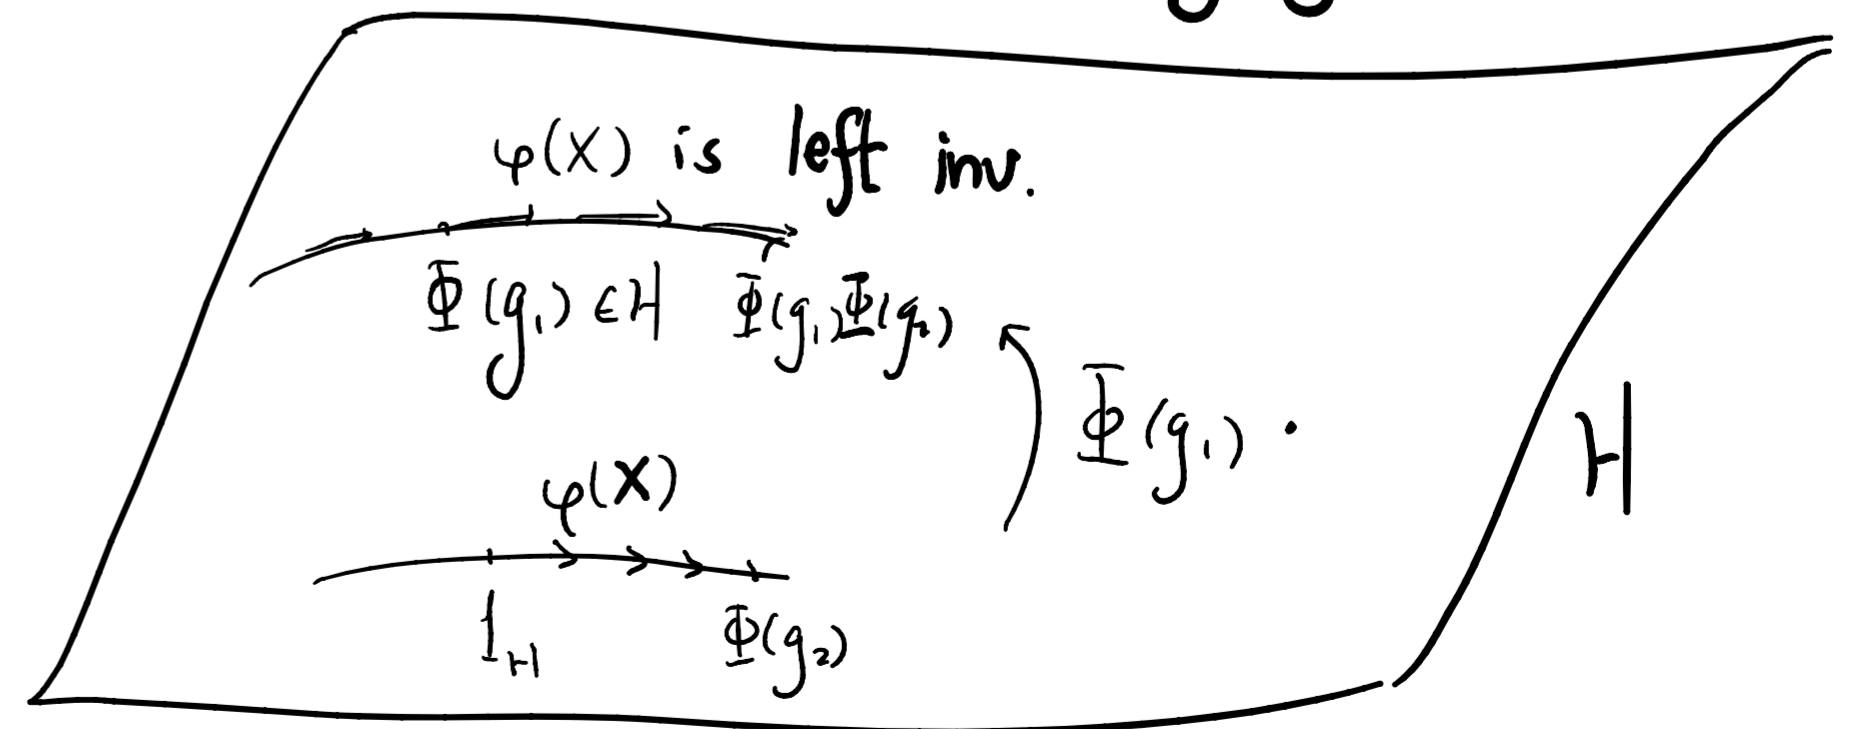 φ(X) is left inv.
Φ(g₁) ∈ H Φ(g₁)Φ(g₂)
Φ(g₁) ·
H
φ(X)
1_H Φ(g₂)